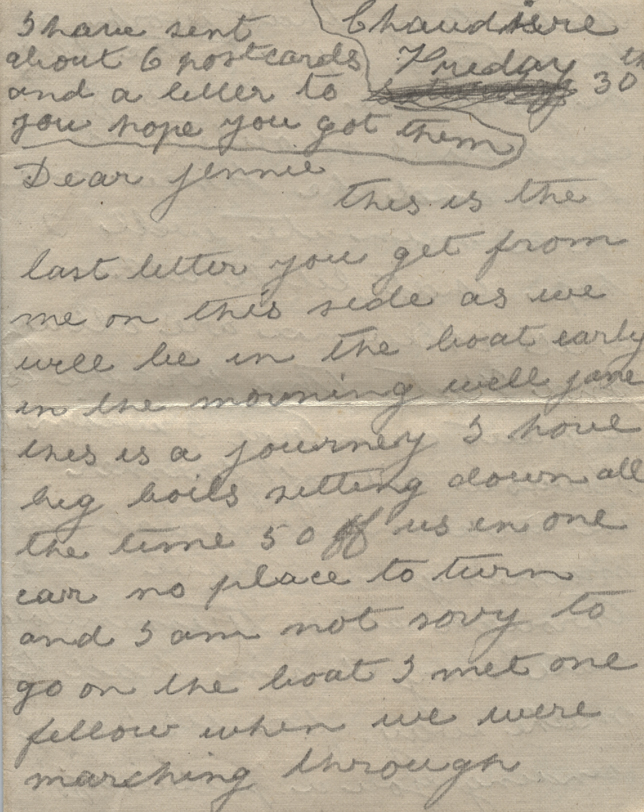 I have sent
about 6 postcards
and a letter to
you hope you got them
Chaudiere
Friday 30th
Dear Jennie
this is the
last letter you get from
me on this side as we
will be in the boat early
in the mourning well jane
this is a journey I have
big boils sitting down all
the time 50 off us in one
car no place to turn
and I am not sory to
go on the boat I met one
fellow when we were
marching through